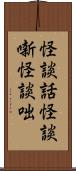 怪談話怪談
噺怪談咄